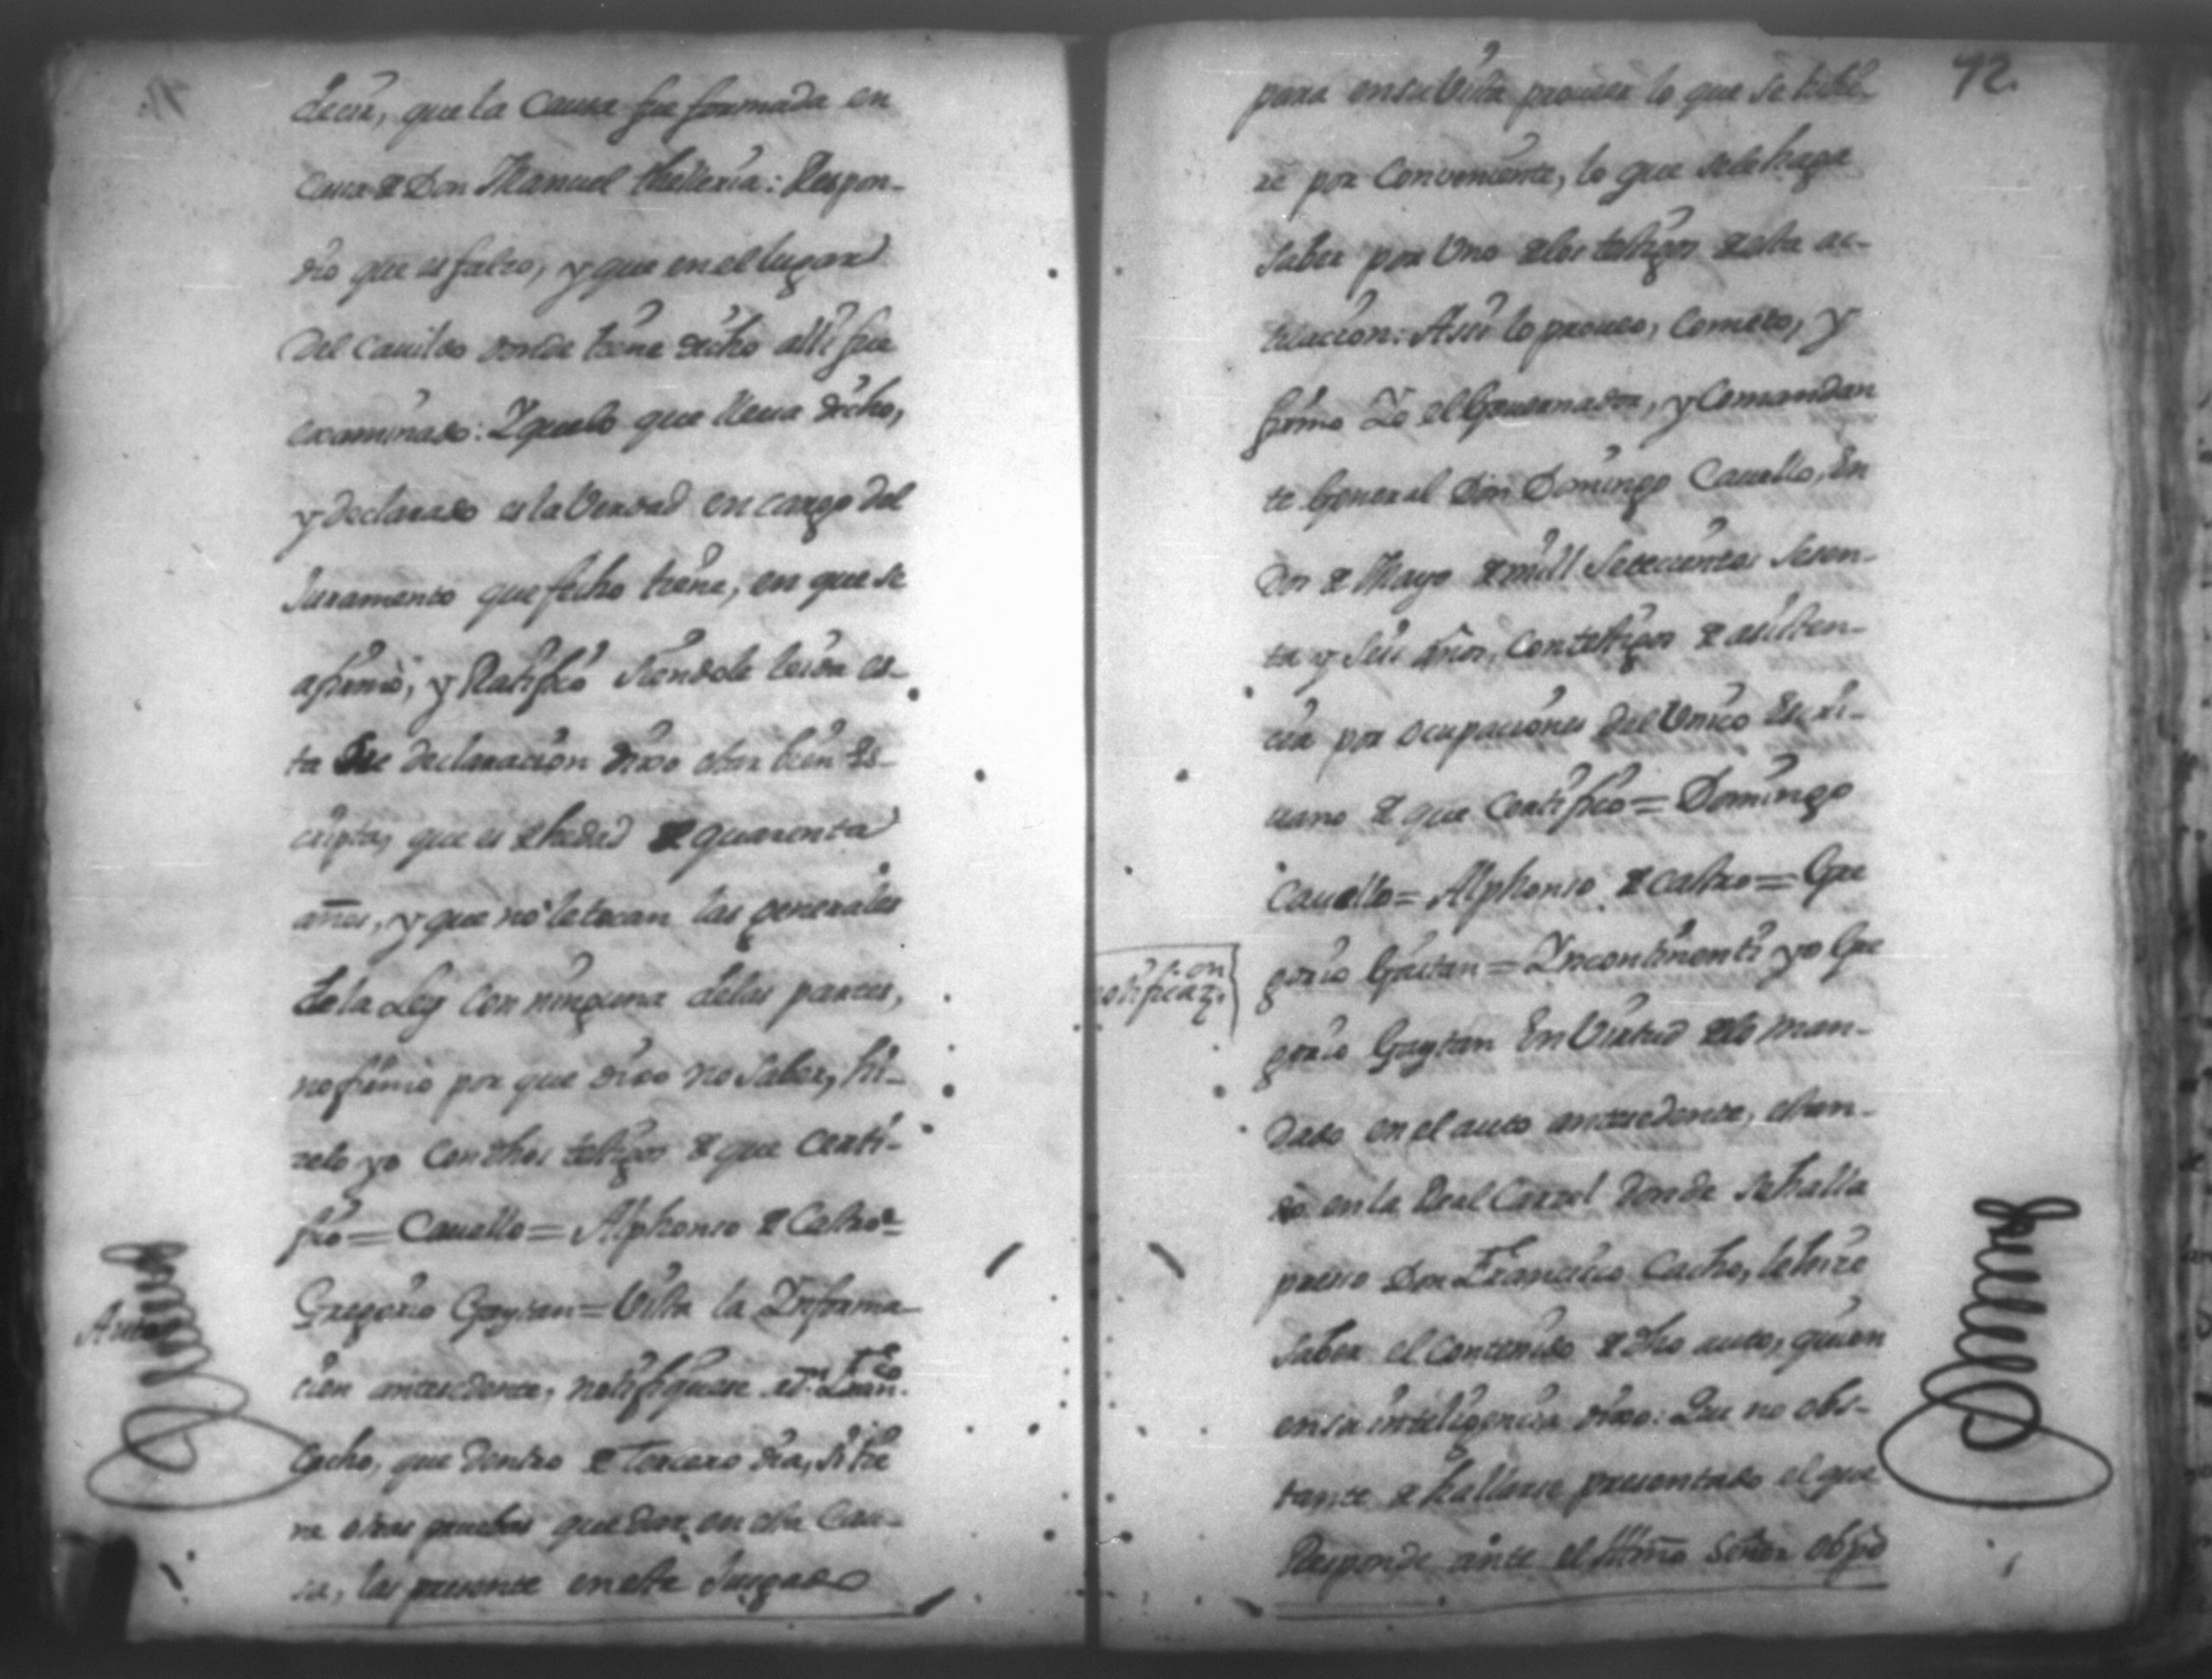 decir, que la Causa fue formada en
Casa de Don Manuel thelleria: Respon-
dio que es falso, y que en el lugar
del Cauildo donde tiene dicho alli fue
examinado: Y que lo que lleua dicho,
y declarado es la Verdad en cargo del
Juramento que fecho tiene, en que se
afirmó, y Ratificó siendole leida es-
ta declaracion dixo estar bien Es-
cripta, que es de hedad de quarenta
años, y que no le tocan las generales
de la Ley con ninguna de las partes,
no firmó por que dixo no saber, hi-
zelo yo con dhos testigos de que Certi-
fico = Cauello = Alphonso de Castro =
Gregorio Gaytan = Vista la Informa-
Auto
cion antecedente, notifiquese a Dn. Franco.
Cacho, que dentro de Tercero dia, si tie
ne otras pruebas que dar en esta Cau-
sa, las presente en este Juzgado
12.
para en su Vista proueer lo que se tubie-
re por Conveniente, lo que se le haga
saber por Uno de los testigos de esta ac-
tuacion: Assi lo proueo, Cometo, y
firmo Yo el Gouernador, y Comandan
te General Don Domingo Cauello, En
Dos de Mayo de mill Setecientos Sesen-
ta y Seis años, Con testigos de asisten-
cia por ocupaciones del Unico Escri-
uano de que Certifico = Domingo
Cauello = Alphonso de Castro = Gre
notificazion
gorio Gaitan = Yncontinenti yo Gre
gorio Gaytan En Virtud de lo man-
dado en el auto antecedente, estan-
do en la Real Carzel donde se halla
preso Don Francisco Cacho, le hize
saber el contenido de dho auto, quien
en su inteligencia dixo: Que no obs-
tante de hallarse presentado el que
Responde ante el Illmo Señor obpo